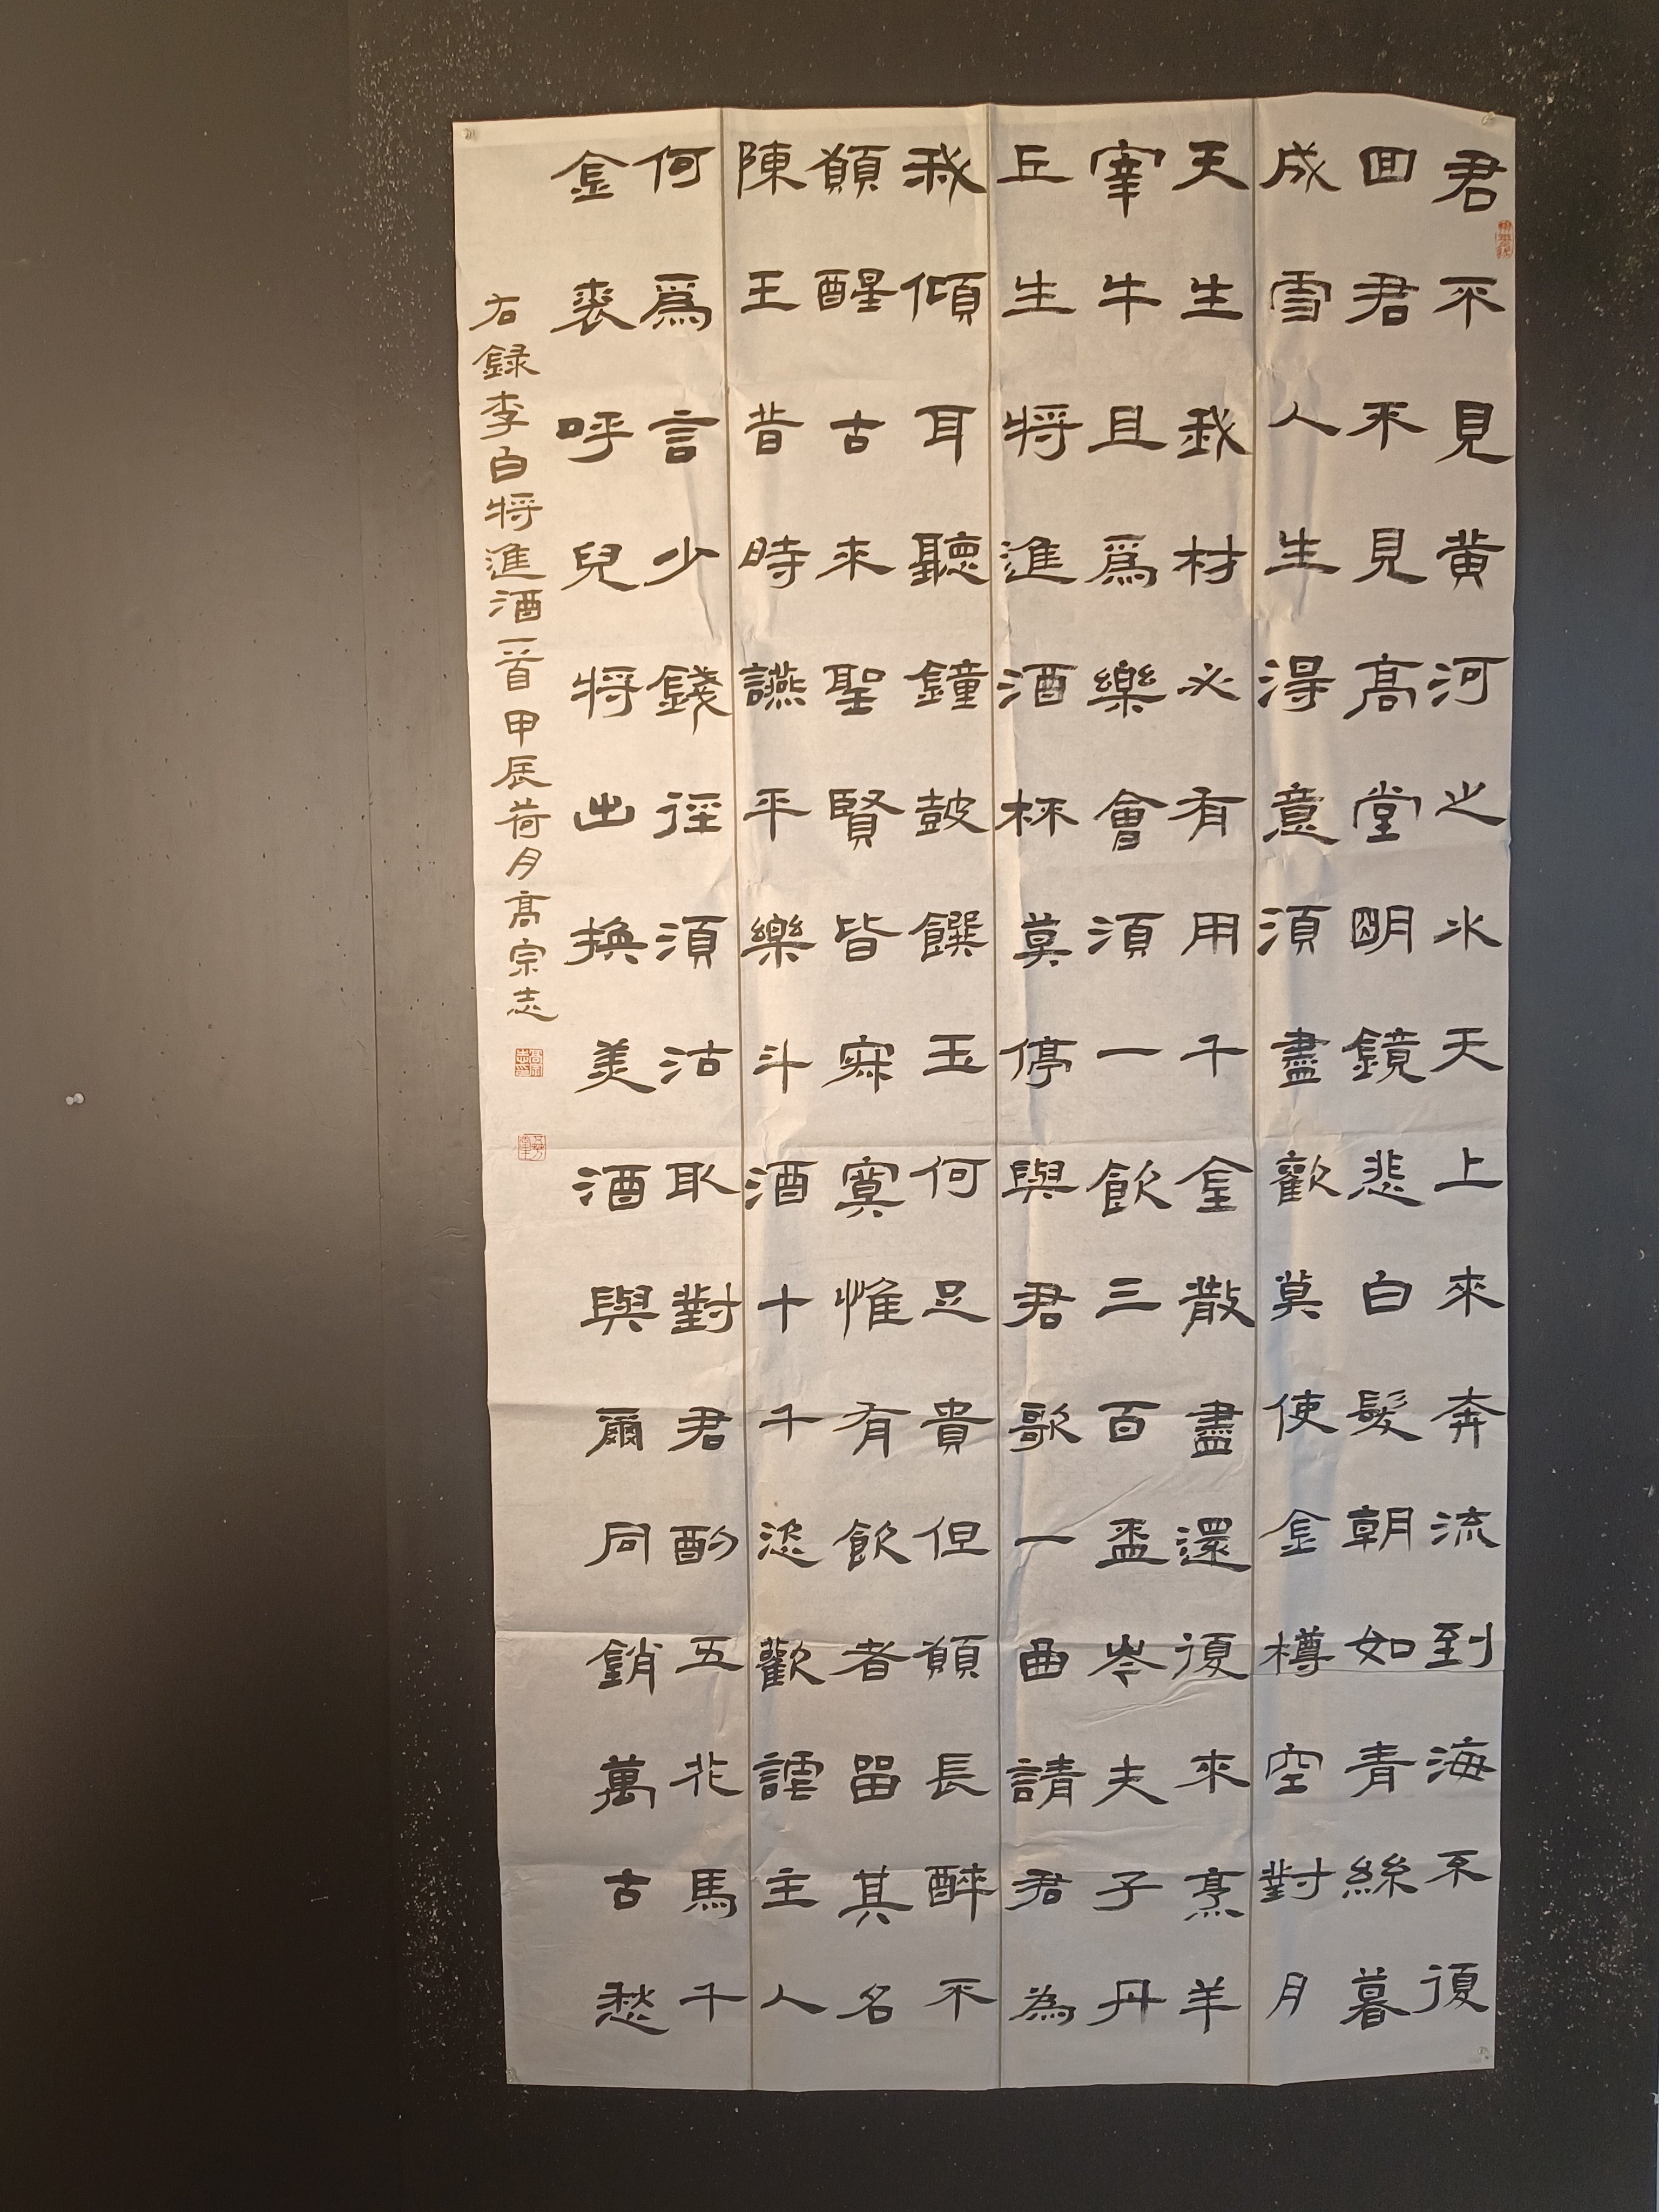 君不見黃河之水天上來奔流到海不復
回君不見高堂明鏡悲白髮朝如青絲暮
成雪人生得意須盡歡莫使金樽空對月
天生我材必有用千金散盡還復來烹羊
宰牛且爲樂會須一飲三百盃岑夫子丹
丘生将進酒杯莫停與君歌一曲請君為
我傾耳聽鐘鼓饌玉何足貴但願長醉不
願醒古來聖賢皆寂寞惟有飲者留其名
陳王昔時讌平樂斗酒十千恣歡謔主人
何爲言少錢徑須沽取對君酌五花馬千
金裘呼兒将出換美酒與爾同銷萬古愁
右録李白将進酒一首甲辰荷月高宗志